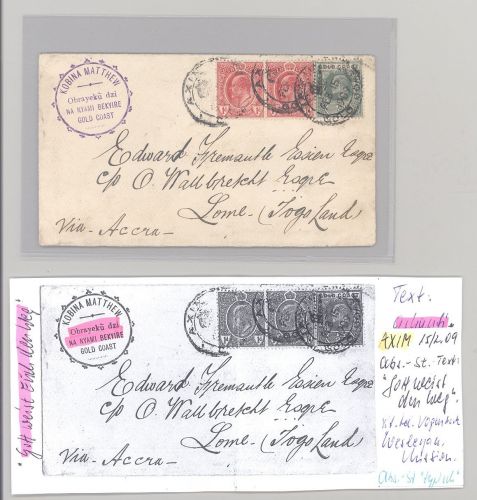 KOBINA MATTHEW
Obrayekū dzi
NA NYAMI BEKYIRE
GOLD COAST
AXIM
GOLD COAST
Edward Fremantle Essien Esqre
c/o O. Wallbrecht Esqre
Lome - (Togo Land
Via - Accra -
KOBINA MATTHEW
Obrayekū dzi
NA NYAMI BEKYIRE
GOLD COAST
AXIM
GOLD COAST
Edward Fremantle Essien Esqre
c/o O. Wallbrecht Esqre
Lome - (Togo Land
Via - Accra -
"Gott weist Euch den Weg"
Text:
AXIM 15/2.09
Abs.-St. Text:
"Gott weist
den Weg".
Mission.
Abs.-St